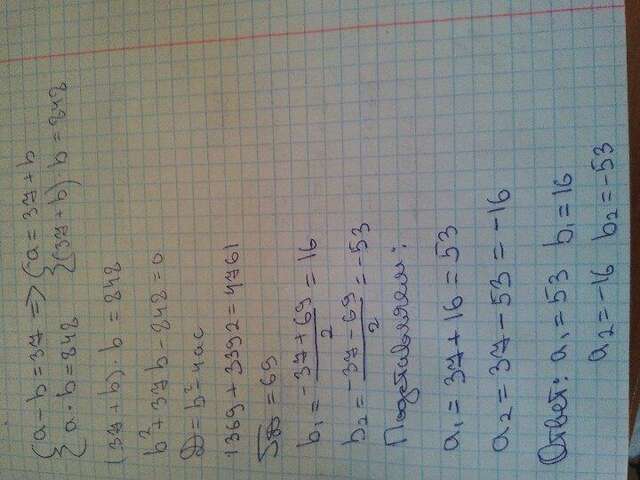 {a - b = 37 => {a = 37 + b
{a · b = 848 {(37 + b) b = 848
(37 + b) · b = 848
b² + 37b - 848 = 0
D = b² - 4ac
1369 + 3392 = 4761
√D = 69
b₁ = (-37 + 69)/2 = 16
b₂ = (-37 - 69)/2 = -53
Подставляем:
a₁ = 37 + 16 = 53
a₂ = 37 - 53 = -16
Ответ: a₁ = 53 b₁ = 16
a₂ = -16 b₂ = -53